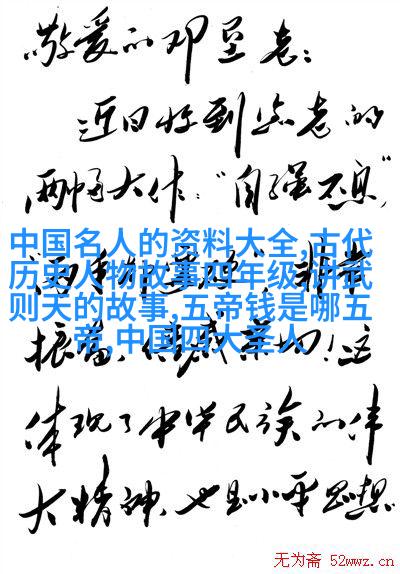 敬爱的邓垦老:
近日收到您老的
两幅大作:"自强不息"
中国名人的资料大全,古代
历史人物故事四年级,讲武
则天的故事,五帝钱是哪五
帝,中国四大圣人
非常
振奋、倍感亲切!这
体现了中华民族的伟
大精神,也是小平思想
无为斋 52wwz.cn